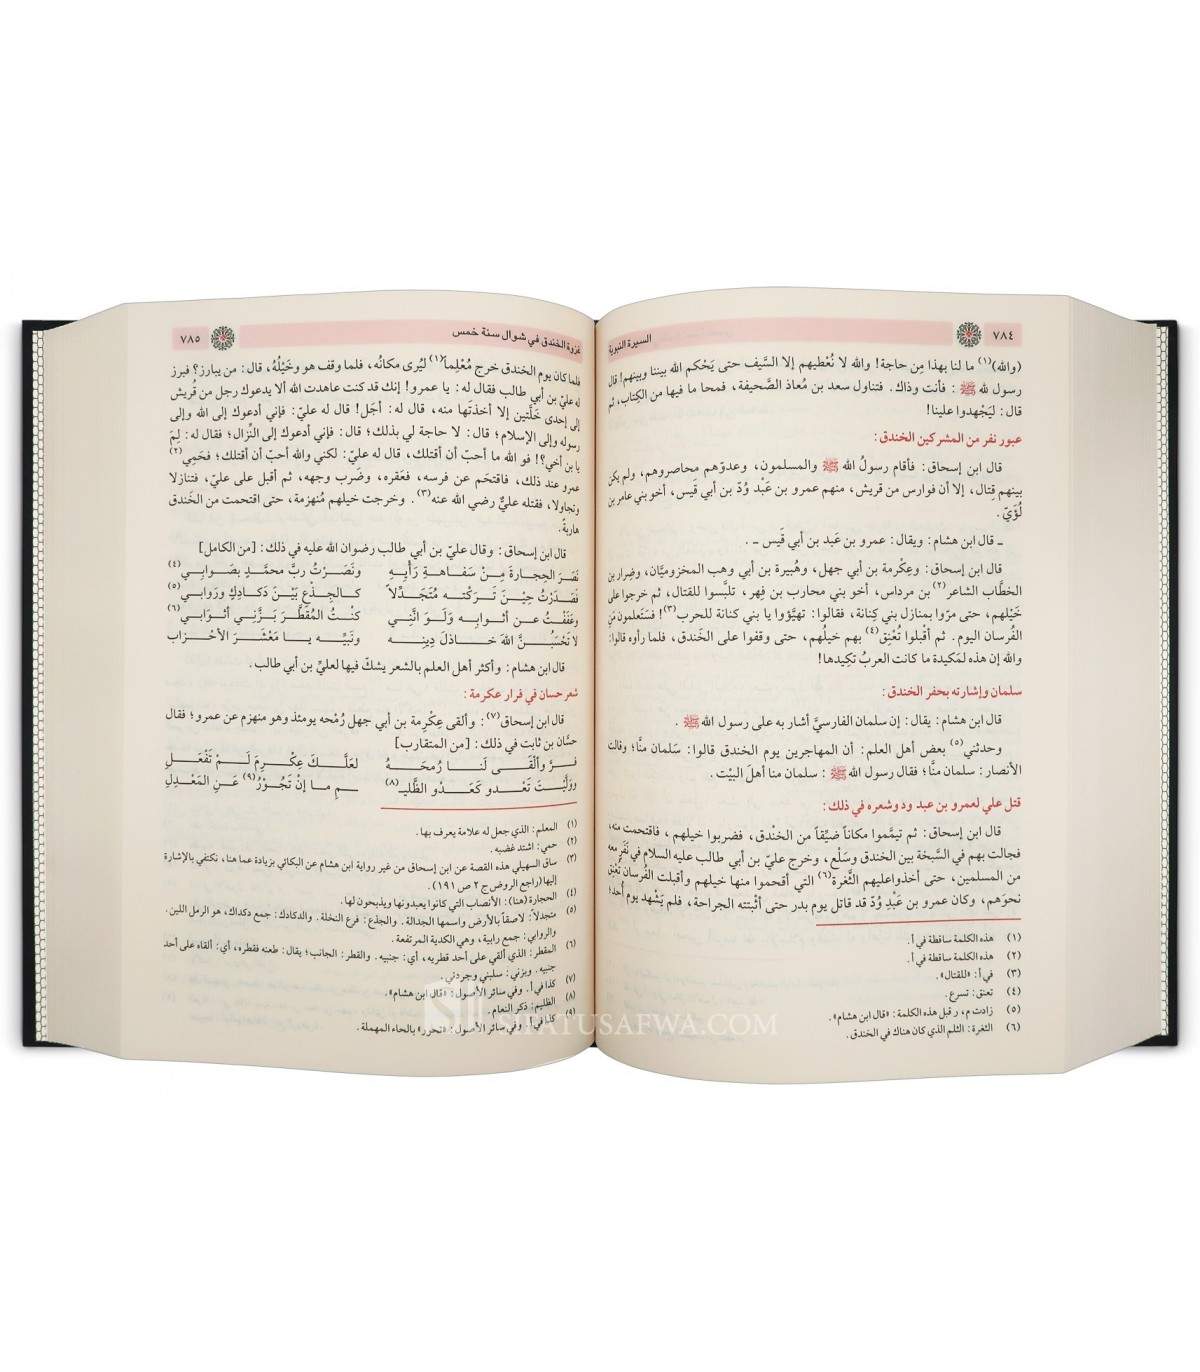 ٧٨٤
السيرة النبوية
(والله)(١) ما لنا بهذا مِن حاجة! والله لا نُعْطيهم إلا السَّيف حتى يَحْكم الله بيننا وبينهم! قال
رسول لله ﷺ : فأنت وذاك. فتناول سعد بن مُعاذ الصَّحيفة، فمحا ما فيها من الكِتاب، ثم
قال: ليَجْهدوا علينا!
عبور نفر من المشركين الخندق:
قال ابن إسحاق: فأقام رسولُ الله ﷺ والمسلمون، وعدوّهم محاصروهم، ولم يكن
بينهم قِتال، إلا أن فوارس من قريش، منهم عمرو بن عَبْد وُدّ بن أبي قَيس، أخو بني عامر بن
لُؤَيّ.
ـ قال ابن هشام: ويقال: عمرو بن عَبد بن أبي قَيس ـ .
قال ابن إسحاق: وعِكْرمة بن أبي جهل، وهُبيرة بن أبي وهب المخزوميَّان، وضِرار بن
الخطَّاب الشاعر(٢) بن مرداس، أخو بني محارب بن فِهر، تلبَّسوا للقتال، ثم خرجوا على
خَيْلهم، حتى مرّوا بمنازل بني كِنانة، فقالوا: تهيَّؤوا يا بني كنانة للحرب(٣)! فستَعلمون مَن
الفُرسان اليوم. ثم أقْبلوا تُعْنِق(٤) بهم خيلُهم، حتى وقفوا على الخَندق، فلما رأوه قالوا:
والله إن هذه لمَكيدة ما كانت العربُ تكِيدها!
سلمان وإشارته بحفر الخندق:
قال ابن هشام: يقال: إن سلمان الفارسيَّ أشار به على رسول الله ﷺ .
وحدثني(٥) بعض أهل العلم: أن المهاجرين يوم الخندق قالوا: سَلمان منَّا؛ وقالت
الأنصار: سلمان منَّا؛ فقال رسول الله ﷺ : سلمان منا أهلَ البيْت.
قتل علي لعمرو بن عبد ود وشعره في ذلك:
قال ابن إسحاق: ثم تيمَّموا مكاناً ضيِّقاً من الخنْدق، فضربوا خيلهم، فاقتحمت منه،
فجالت بهم في السَّبْخة بين الخندق وسَلْع، وخرج عليّ بن أبي طالب عليه السلام في نَفَرٍ معه
من المسلمين، حتى أخذوا عليهم الثَّغرة(٦) التي أقحموا منها خيلهم وأقبلت الفُرسان تُعْنق
نحوَهم، وكان عمرو بن عَبْدِ وُدّ قد قاتل يوم بدر حتى أثْبتته الجراحة، فلم يَشْهد يوم أُحد؛
(١) هذه الكلمة ساقطة في أ.
(٢) هذه الكلمة ساقطة في أ.
(٣) في أ: «للقتال».
(٤) تعنق: تسرع.
(٥) زادت م، ر قبل هذه الكلمة: «قال ابن هشام».
(٦) الثغرة: الثلم الذي كان هناك في الخندق.
غزوة الخندق في شوال سنة خمس
٧٨٥
فلما كان يوم الخندق خرج مُعْلِما(١) ليُرى مكانُه، فلما وقف هو وخَيْلُهُ، قال: من يبارز؟ فبرز
له عليّ بن أبي طالب فقال له: يا عمرو! إنك قد كنت عاهدت الله ألا يدعوك رجل من قُريش
إلى إحدى خَلَّتين إلا أخذتَها منه، قال له: أجَل! قال له عليّ: فإني أدعوك إلى الله وإلى
رسوله وإلى الإسلام؛ قال: لا حاجة لي بذلك؛ قال: فإني أدعوك إلى النِّزال؛ فقال له: لِمَ
يا بن أخي؟! فو الله ما أحبّ أن أقتلك، قال له عليّ: لكني والله أحبّ أن أقتلك؛ فحَمِي(٢)
عمرو عند ذلك، فاقتحَم عن فرسه، فعَقره، وضَرب وجهه، ثم أقبل على عليّ، فتنازلا
وتجاولا، فقتله عليٌّ رضي الله عنه(٣). وخرجت خيلهم مُنهزمة، حتى اقتحمت من الخَندق
هاربةً.
قال ابن إسحاق: وقال عليّ بن أبي طالب رضوان الله عليه في ذلك: [من الكامل]
نَصَر الحِجارةَ مِنْ سَفاهةِ رَأْيِهِ ونَصَرْتُ ربَّ محمَّدٍ بصَوابي(٤)
فصَدَرْتُ حِيْنَ تَركتُه مُتَجَدِّلاً كالجِذْعِ بَيْنَ دَكادِكٍ ورَوابي(٥)
وعَفَفْتُ عن أثوابِه وَلَوَ انَّني كنْتُ المُقَطَّرَ بَزَّني أثوابي(٦)
لا تَحْسَبُنَّ اللهَ خاذلَ دِينِه ونَبِيِّه يا مَعْشَرَ الأحْزاب
قال ابن هشام: وأكثر أهل العلم بالشعر يشكّ فيها لعليِّ بن أبي طالب.
شعر حسان في فرار عكرمة:
قال ابن إسحاق(٧): وألقى عِكْرِمة بن أبي جهل رُمْحه يومئذ وهو منهزم عن عمرو؛ فقال
حسَّان بن ثابت في ذلك: [من المتقارب]
فرَّ وألْقَى لَنا رُمحَهُ لعَلَّكَ عِكْرِمَ لَمْ تَفْعَلِ
ووَلَّيْتَ تَعْدو كَعَدْوِ الظَّليـ(٨) ـمِ ما إنْ تَجُوْرُ(٩) عَنِ المَعْدِلِ
(١) المعلم: الذي جعل له علامة يعرف بها.
(٢) حمي: اشتد غضبه.
(٣) ساق السهيلي هذه القصة عن ابن إسحاق من غير رواية ابن هشام عن البكائي بزيادة عما هنا، نكتفي بالإشارة
إليها (راجع الروض ج ٢ ص ١٩١).
(٤) الحجارة (هنا): الأنصاب التي كانوا يعبدونها ويذبحون لها.
(٥) متجدلاً: لاصقاً بالأرض واسمها الجدالة. والجذع: فرع النخلة. والدكادك: جمع دكداك، هو الرمل اللين.
والروابي: جمع رابية، وهي الكدية المرتفعة.
(٦) المقطر: الذي ألقي على أحد قطريه، أي: جنبيه. والقطر: الجانب؛ يقال: طعنه فقطره، أي: ألقاه على أحد
جنبيه. وبزني: سلبني وجردني.
(٧) كذا في أ. وفي سائر الأصول: «قال ابن هشام».
(٨) الظليم: ذكر النعام.
(٩) كذا في أ. وفي سائر الأصول: «تحور» بالحاء المهملة.
SIFATUSAFWA.COM